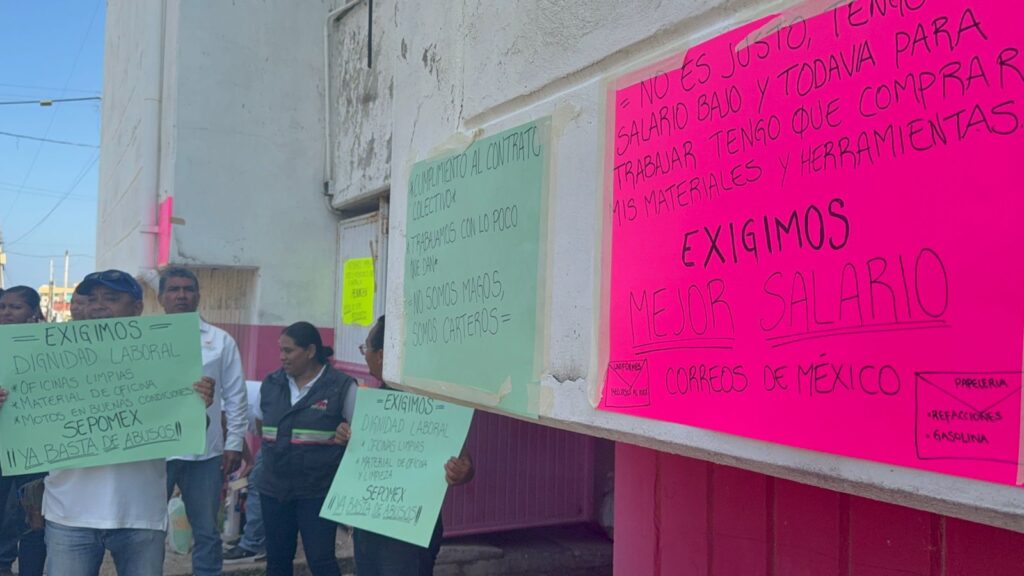 = EXIGIMOS =
DIGNIDAD LABORAL
* OFICINAS LIMPIAS
* MATERIAL DE OFICINA
* MOTOS EN BUENAS CONDICIONES
SEPOMEX
¡¡YA BASTA DE ABUSOS!!
= EXIGIMOS =
DIGNIDAD LABORAL
* OFICINAS LIMPIAS
* MATERIAL DE OFICINA
Y LIMPIEZA
SEPOMEX
¡¡YA BASTA DE ABUSOS!!
*CUMPLIMENTO AL CONTRATO
COLECTIVO*
* TRABAJAMOS CON LO POCO
QUE DAN*
= NO SOMOS MAGOS,
SOMOS CARTEROS =
= NO ES JUSTO, TENGO
SALARIO BAJO Y TODAVA PARA
TRABAJAR TENGO QUE COMPRAR
MIS MATERIALES Y HERRAMIENTAS.
EXIGIMOS
MEJOR SALARIO
CORREOS DE MÉXICO
UNIFORMES
PAPELERIA
* REFACCIONES
* GASOLINA